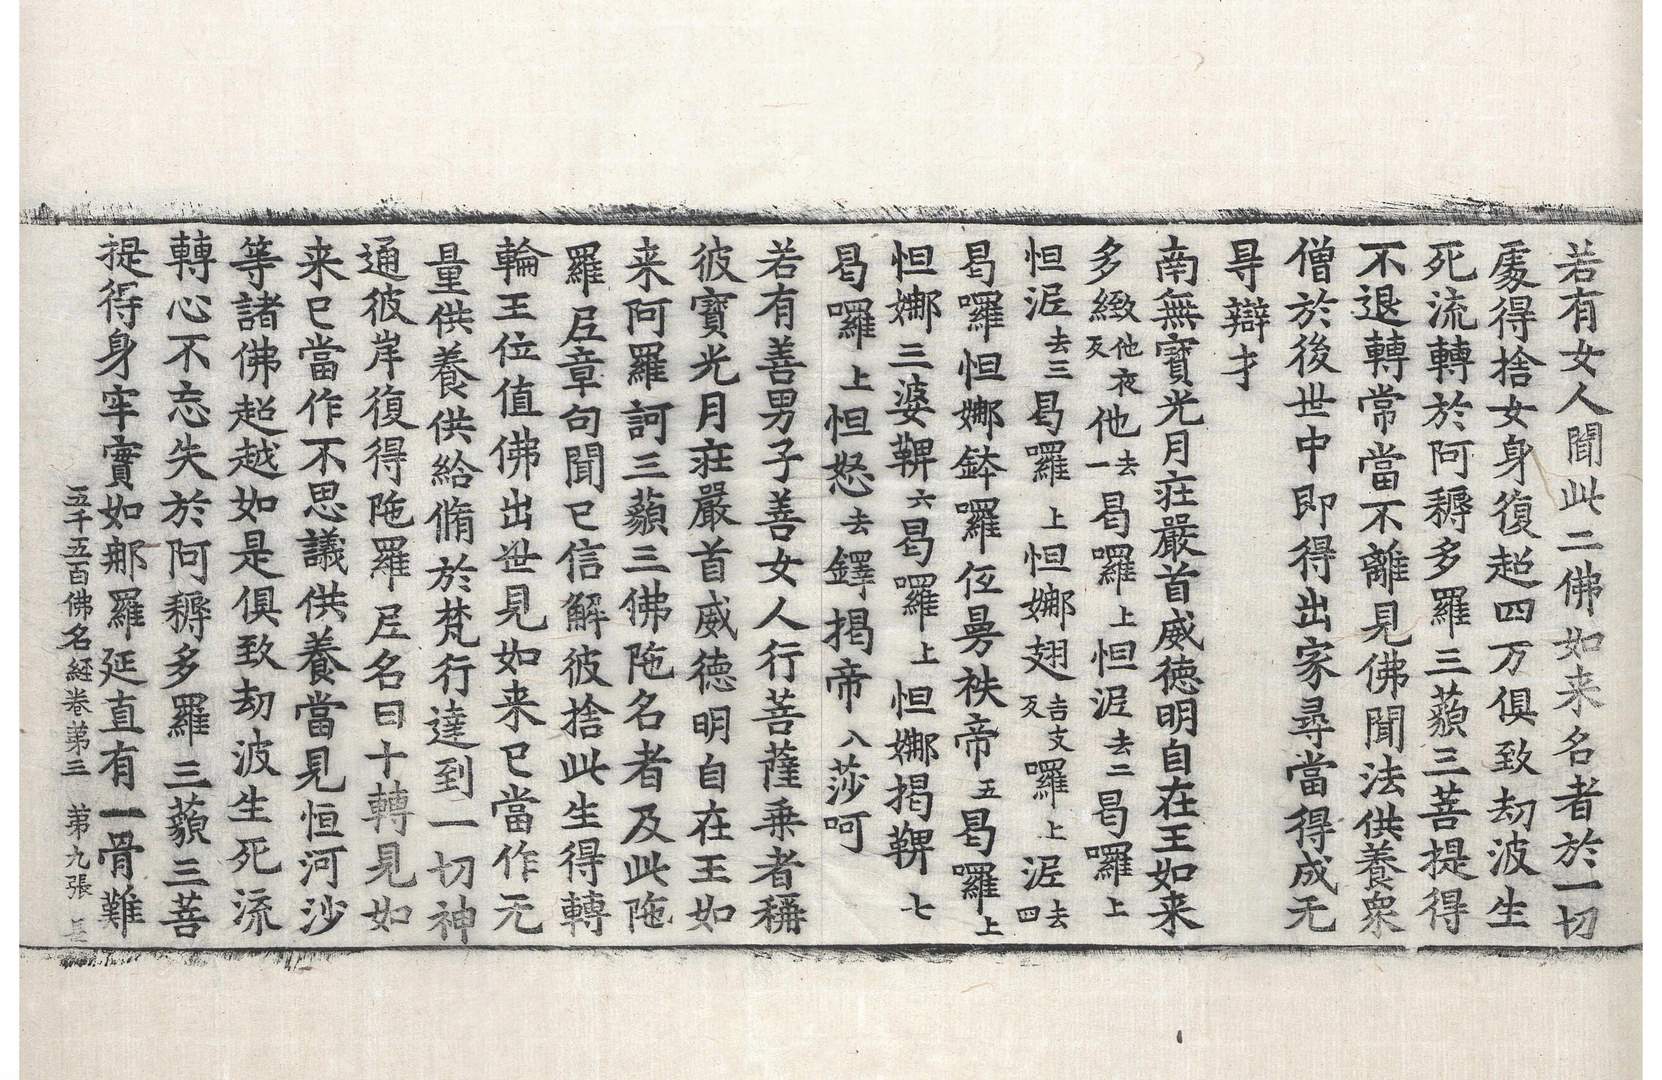 若有女人聞此二佛如来名者於一切
處得捨女身復超四万俱致劫波生
死流轉於阿耨多羅三藐三菩提得
不退轉常當不離見佛聞法供養衆
僧於後世中即得出家尋當得成无
㝵辯才
南無寶光月莊嚴首威德明自在王如来
多緻他夜反他去一曷囉上怛泥去二曷囉上
怛泥去三曷囉上怛娜翅吉支反囉上泥去四
曷囉怛娜鉢囉伾曼袟帝五曷囉上
怛娜三婆鞞六曷囉上怛娜揭鞞七
曷囉上怛怒去鐸揭帝八莎呵
若有善男子善女人行菩薩乗者稱
彼寶光月莊嚴首威德明自在王如
来阿羅訶三藐三佛陁名者及此陁
羅尼章句聞已信解彼捨此生得轉
輪王位值佛出世見如来已當作无
量供養供給脩於梵行達到一切神
通彼岸復得陁羅尼名曰十轉見如
来已當作不思議供養當見恒河沙
等諸佛超越如是俱致劫波生死流
轉心不忘失於阿耨多羅三藐三菩
提得身牢實如那羅延直有一骨難
五千五百佛名經卷第三　第九張